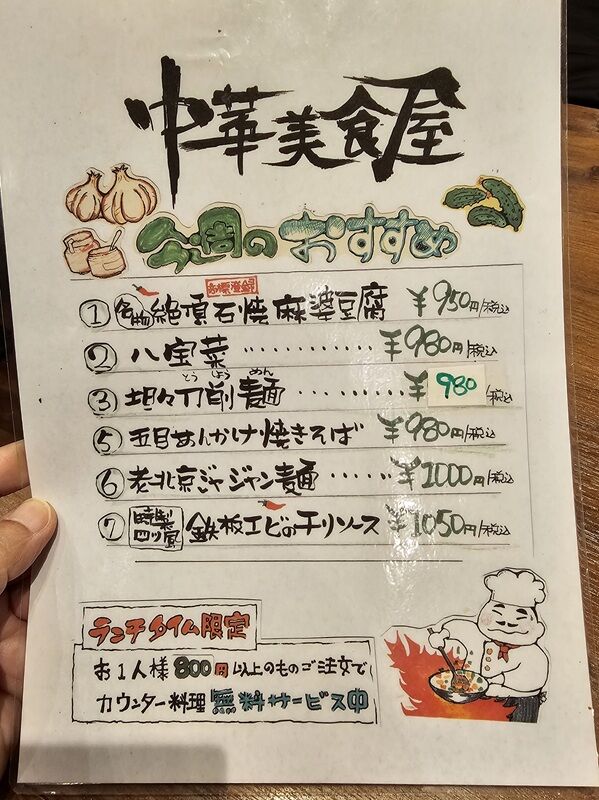 中華美食屋
今週のおすすめ
商標登録
① 名物 絶頂石焼麻婆豆腐 ¥950円/税込
② 八宝菜 ············ ¥980円/税込
とう しょう めん
③ 坦々刀削麺 ········· ¥980/税込
⑤ 五目あんかけ焼きそば ¥980円/税込
⑥ 老北京ジャージャン麺 ······ ¥1000円/税込
⑦ 特製四川風 鉄板エビのチリソース ¥1050円/税込
ランチタイム限定
お1人様800円以上のものご注文で
カウンター料理無料サービス中